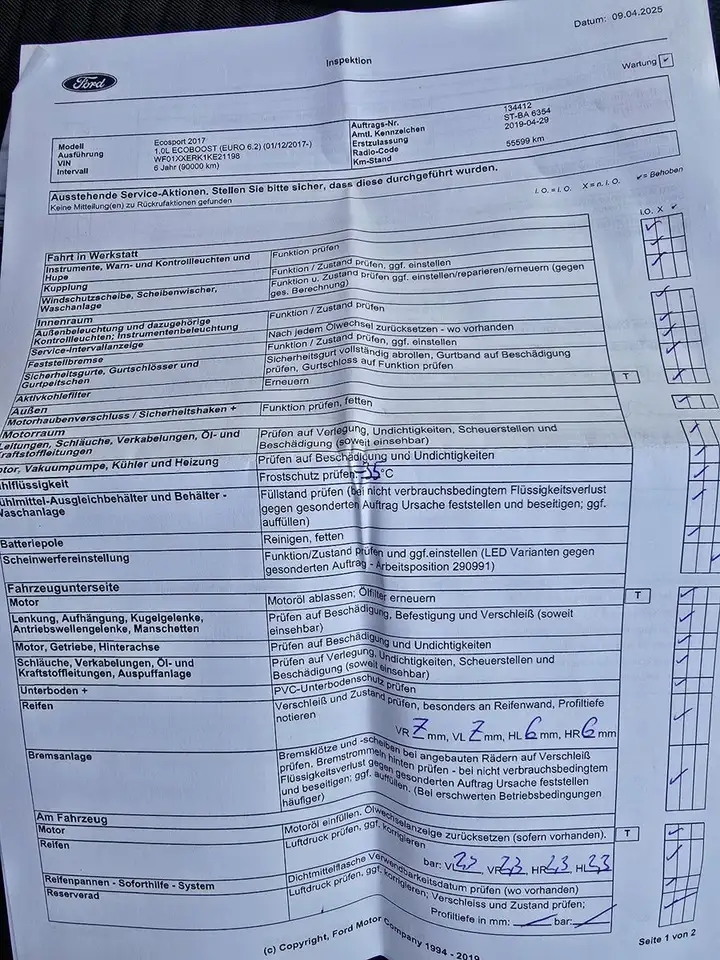 Datum: 09.04.2025
Ford
Inspektion
Wartung
Modell Ecosport 2017
Ausführung 1.0L ECOBOOST (EURO 6.2) (01/12/2017-)
VIN WF01XXERK1KE21198
Intervall 6 Jahr (90000 km)
Auftrags-Nr. 134412
Amtl. Kennzeichen ST-BA 6354
Erstzulassung 2019-04-29
Radio-Code
Km-Stand 55599 km
Ausstehende Service-Aktionen. Stellen Sie bitte sicher, dass diese durchgeführt wurden.
Keine Mitteilung(en) zu Rückrufaktionen gefunden
I. O. = i. O. X = n. i. O. ✔= Behoben
I.O. X ✔
Fahrt in Werkstatt
Instrumente, Warn- und Kontrollleuchten und Hupe
Funktion prüfen
Kupplung
Funktion / Zustand prüfen, ggf. einstellen
Windschutzscheibe, Scheibenwischer, Waschanlage
Funktion u. Zustand prüfen ggf. einstellen/reparieren/erneuern (gegen
ges. Berechnung)
Innenraum
Außenbeleuchtung und dazugehörige
Kontrollleuchten; Instrumentenbeleuchtung
Funktion / Zustand prüfen
Service-Intervallanzeige
Nach jedem Ölwechsel zurücksetzen - wo vorhanden
Feststellbremse
Funktion / Zustand prüfen, ggf. einstellen
Sicherheitsgurte, Gurtschlösser und
Gurtpeitschen
Sicherheitsgurt vollständig abrollen, Gurtband auf Beschädigung
prüfen, Gurtschloss auf Funktion prüfen
Aktivkohlefilter
Erneuern
T
Außen
Motorhaubenverschluss / Sicherheitshaken +
Funktion prüfen, fetten
Motorraum
Leitungen, Schläuche, Verkabelungen, Öl- und
raftstoffleitungen
Prüfen auf Verlegung, Undichtigkeiten, Scheuerstellen und
Beschädigung (soweit einsehbar)
otor, Vakuumpumpe, Kühler und Heizung
Prüfen auf Beschädigung und Undichtigkeiten
hlflüssigkeit
Frostschutz prüfen -35 °C
ühlmittel-Ausgleichbehälter und Behälter -
Waschanlage
Füllstand prüfen (bei nicht verbrauchsbedingtem Flüssigkeitsverlust
gegen gesonderten Auftrag Ursache feststellen und beseitigen; ggf.
auffüllen)
Batteriepole
Reinigen, fetten
Scheinwerfereinstellung
Funktion/Zustand prüfen und ggf.einstellen (LED Varianten gegen
gesonderten Auftrag - Arbeitsposition 290991)
Fahrzeugunterseite
Motor
Motoröl ablassen; Ölfilter erneuern
T
Lenkung, Aufhängung, Kugelgelenke,
Antriebswellengelenke, Manschetten
Prüfen auf Beschädigung, Befestigung und Verschleiß (soweit
einsehbar)
Motor, Getriebe, Hinterachse
Prüfen auf Beschädigung und Undichtigkeiten
Schläuche, Verkabelungen, Öl- und
Kraftstoffleitungen, Auspuffanlage
Prüfen auf Verlegung, Undichtigkeiten, Scheuerstellen und
Beschädigung (soweit einsehbar)
Unterboden +
PVC-Unterbodenschutz prüfen
Reifen
Verschleiß und Zustand prüfen, besonders an Reifenwand, Profiltiefe
notieren
VR 7 mm, VL 7 mm, HL 6 mm, HR 6 mm
Bremsanlage
Bremsklötze und -scheiben bei angebauten Rädern auf Verschleiß
prüfen. Bremstrommeln hinten prüfen - bei nicht verbrauchsbedingtem
Flüssigkeitsverlust gegen gesonderten Auftrag Ursache feststellen
und beseitigen; ggf. auffüllen. (Bei erschwerten Betriebsbedingungen
häufiger)
Am Fahrzeug
Motor
Motoröl einfüllen. Ölwechselanzeige zurücksetzen (sofern vorhanden).
T
Reifen
Luftdruck prüfen, ggf. korrigieren
bar: VL 2,3 VR 2,3 HR 2,3 HL 2,3
Reifenpannen - Soforthilfe - System
Dichtmittelflasche Verwendbarkeitsdatum prüfen (wo vorhanden)
Reserverad
Luftdruck prüfen, ggf. korrigieren; Verschleiss und Zustand prüfen;
Profiltiefe in mm: bar:
(c) Copyright, Ford Motor Company 1994 - 2019
Seite 1 von 2